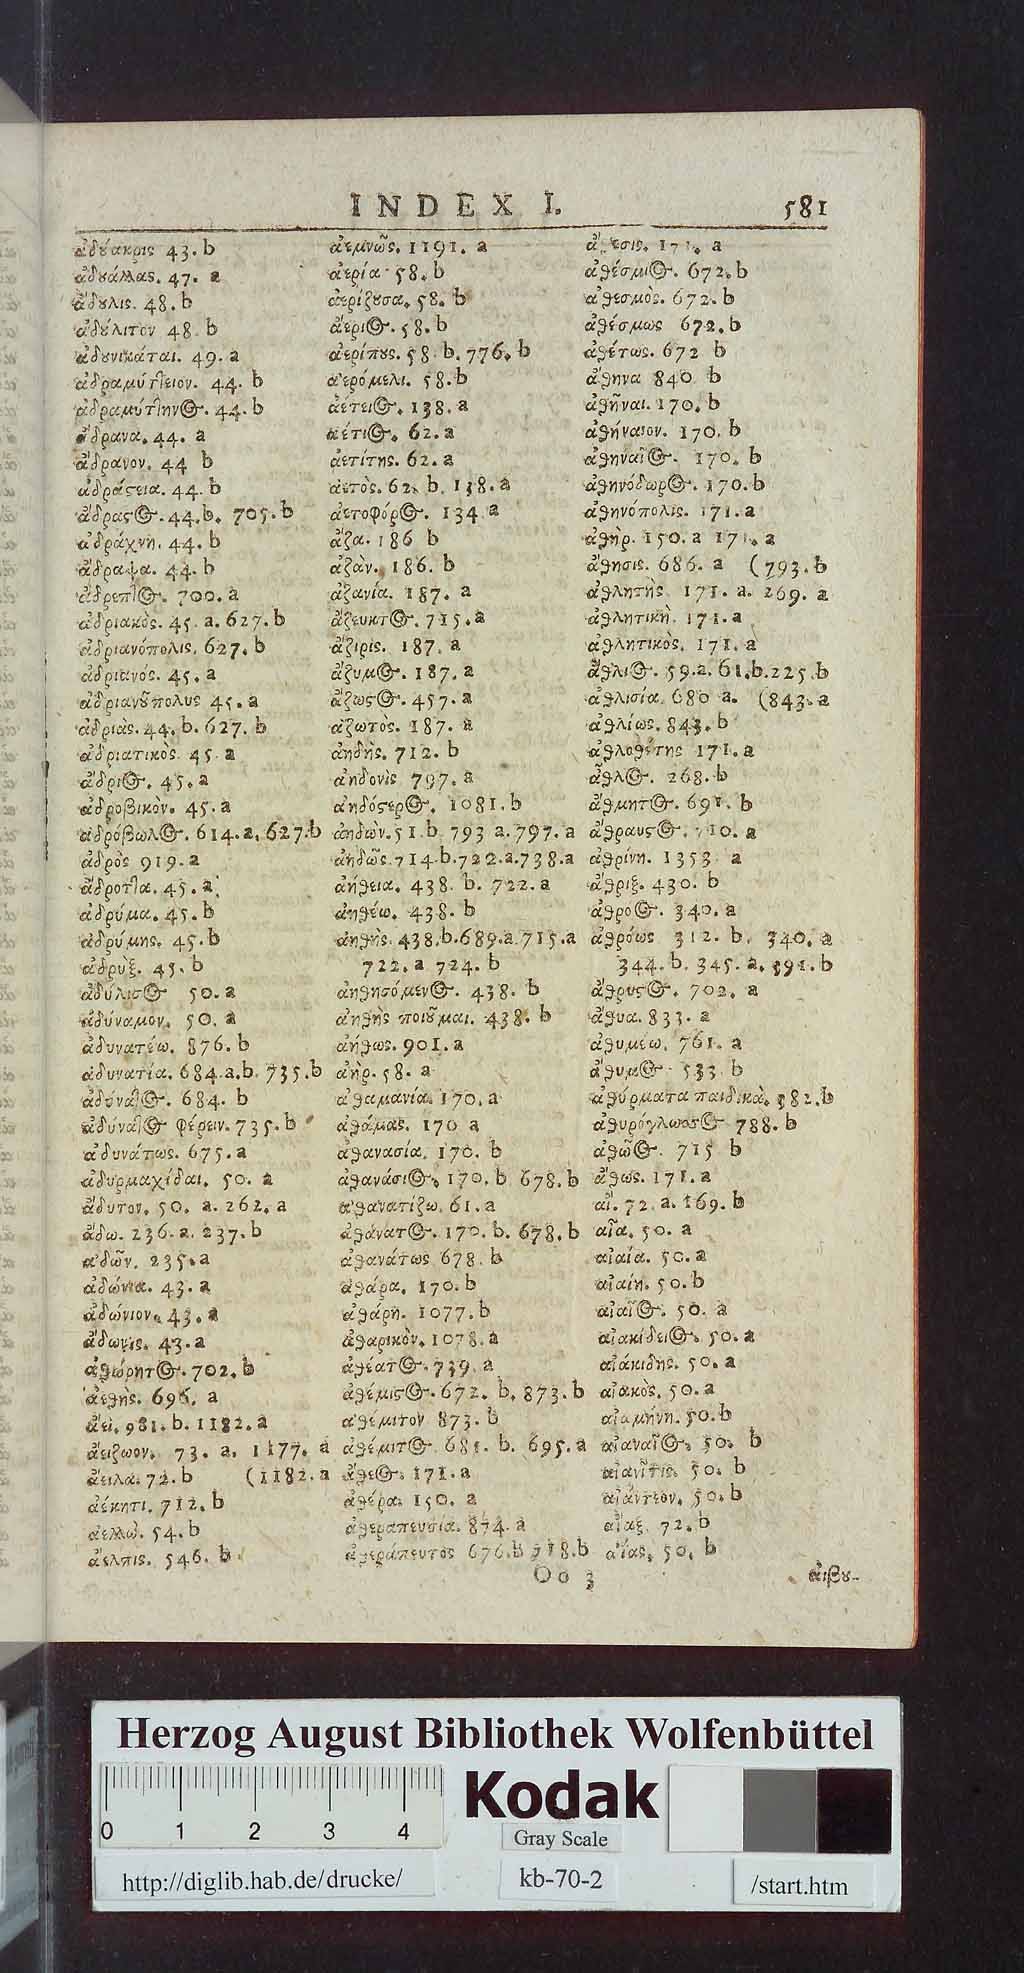 INDEX I. 581
ἀδούακρις 43. b
ἀδουάλλας. 47. a
ἄδουλις. 48. b
ἀδούλιτον 48. b
ἀδουνικάται. 49. a
ἀδραμύττειον. 44. b
ἀδραμύττηνος. 44. b
ἄδρανα. 44. a
ἄδρανον. 44 b
ἀδράστεια. 44. b
ἄδραστος. 44. b. 705. b
ἀδράχνη. 44. b
ἄδραψα. 44. b
ἄδρεπτος. 700. a
ἀδριακὸς. 45. a. 627. b
ἀδριανόπολις. 627. b
ἀδριανός. 45. a
ἀδριανοῦπολυς 45. a
ἀδριὰς. 44. b. 627. b
ἀδριατικὸς. 45. a
ἄδριος. 45. a
ἀδροβικὸν. 45. a
ἀδρόβωλος. 614. a. 627. b
ἀδρὸς 919. a
ἄδροττα. 45. a
ἀδρύμα. 45. b
ἀδρύμης. 45. b
ἀδρὺξ. 45. b
ἀδύλισος 50. a
ἀδύναμον. 50. a
ἀδυνατέω. 876. b
ἀδυνατία. 684. a. b. 735. b
ἀδύνατος. 684. b
ἀδύνατος φέρειν. 735. b
ἀδυνάτως. 675. a
ἀδυρμαχίδαι. 50. a
ἄδυτον. 50. a. 262. a
ἄδω. 236. a. 237. b
ἀδῶν. 235. a
ἀδώνια. 43. a
ἀδώνιον. 43. a
ἄδωνις. 43. a
ἀθώρητος. 702. b
ἀεθὴς. 696. a
ἀεὶ. 981. b. 1182. a
ἀείζωον. 73. a. 1177. a
ἄειλα. 72. b (1182. a
ἀέκητι. 712. b
ἀελλὼ. 54. b
ἄελπις. 546. b
ἀεμνῶς. 1191. a
ἀερία 58. b
ἀερίζουσα. 58. b
ἀέριος. 58. b
ἀερίπους. 58. b. 776. b
ἀερόμελι. 58. b
ἀέτειος. 138. a
ἀέτιος. 62. a
ἀετίτης. 62. a
ἀετὸς. 62. b. 138. a
ἀετοφόρος. 134 a
ἄζα. 186 b
ἀζὰν. 186. b
ἀζανία. 187. a
ἄζευκτος. 715. a
ἄζιρις. 187. a
ἄζυμος. 187. a
ἄζωστος. 457. a
ἀζωτὸς. 187. a
ἀηδὴς. 712. b
ἀηδονὶς 797. a
ἀηδόστερος. 1081. b
ἀηδὼν. 51. b. 793 a. 797. a
ἀηδῶς. 714. b. 722. a. 738. a
ἀήθεια. 438. b. 722. a
ἀηθέω. 438. b
ἀηθὴς. 438. b. 689. a. 715. a
722. a 724. b
ἀηθησόμενος. 438. b
ἀηθὴς ποιοῦμαι. 438. b
ἀήθως. 901. a
ἀὴρ. 58. a
ἀθαμανία. 170. a
ἀθάμας. 170 a
ἀθανασία. 170. b
ἀθανάσιος. 170. b 678. b
ἀθανατίζω. 61. a
ἀθάνατος. 170. b. 678. b
ἀθανάτως 678. b
ἀθάρα. 170. b
ἀθάρη. 1077. b
ἀθαρικὸν. 1078. a
ἀθέατος. 739. a
ἀθέμιστος. 672. b. 873. b
ἀθέμιτον 873. b
ἀθέμιτος. 681. b. 695. a
ἄθεος. 171. a
ἀθέρα. 150. a
ἀθεραπευσία. 874. a
ἀθεράπευτος 676. b b
ἄθεσις. a
ἀθέσμιος. 672. b
ἄθεσμὸς. 672. b
ἀθέσμως 672. b
ἀθέτως. 672 b
ἄθηνα 840. b
ἀθῆναι. 170. b
ἀθήναιον. 170. b
ἀθηναῖος. 170. b
ἀθηνόδωρος. 170. b
ἀθηνόπολις. 171. a
ἀθὴρ. 150. a 171. a
ἄθησις. 686. a (793. b
ἀθλητὴς. 171. a. 269. a
ἀθλητικὴ. 171. a
ἀθλητικὸς. 171. a
ἄθλιος. 59. a. 61. b. 225. b
ἀθλισία. 680 a. (843. a
ἀθλίως. 843. b
ἀθλοθέτης 171. a
ἆθλος. 268. b
ἄθμητος. 691. b
ἄθραυστος. 710. a
ἀθρίνη. 1353 a
ἄθριξ. 430. b
ἄθροος. 340. a
ἀθρόως 312. b. 340. a
344. b. 345. a. 591. b
ἄθρυστος. 702. a
ἄθυα. 833. a
ἀθυμέω. 761. a
ἄθυμος 533 b
ἀθύρματα παιδικὰ. 582. b
ἀθυρόγλωσσος 788. b
ἀθῶος. 715 b
ἄθως. 171. a
αἲ. 72. a. 169. b
αἶα. 50. a
αἰαία. 50. a
αἰαίη. 50. b
αἰαῖος. 50. a
αἰακίδειος. 50. a
αἰάκιδης. 50. a
αἰακὸς. 50. a
αἰαμήνη. 50. b
αἰαναῖος. 50. b
αἰανῖτις. 50. b
αἰάντεον. 50. b
αἴαξ. 72. b
αἴας. 50. b
Oo 3 ἀιβου-
Herzog August Bibliothek Wolfenbüttel
0 1 2 3 4
Kodak
Gray Scale
http://diglib.hab.de/drucke/ kb-70-2 /start.htm